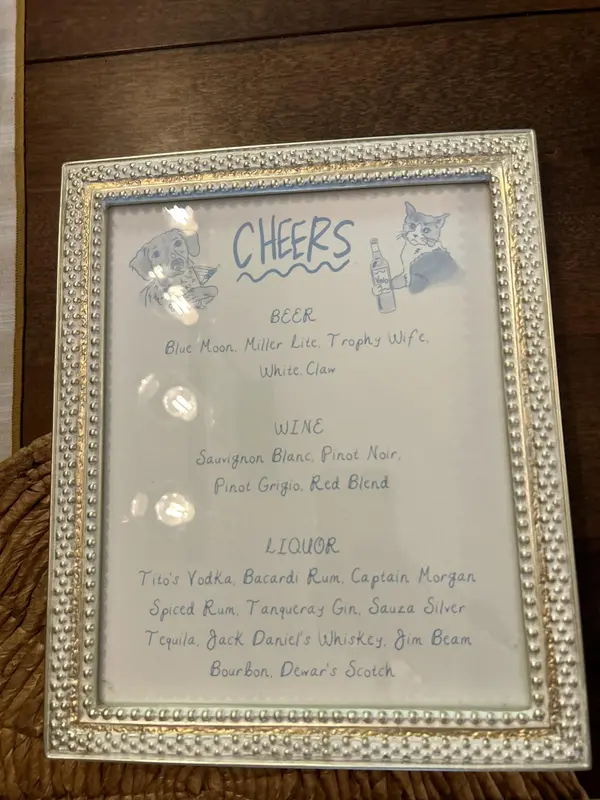 CHEERS
BEER
Blue Moon, Miller Lite, Trophy Wife,
White Claw
WINE
Sauvignon Blanc, Pinot Noir,
Pinot Grigio, Red Blend
LIQUOR
Tito's Vodka, Bacardi Rum, Captain Morgan
Spiced Rum, Tanqueray Gin, Sauza Silver
Tequila, Jack Daniel's Whiskey, Jim Beam
Bourbon, Dewar's Scotch